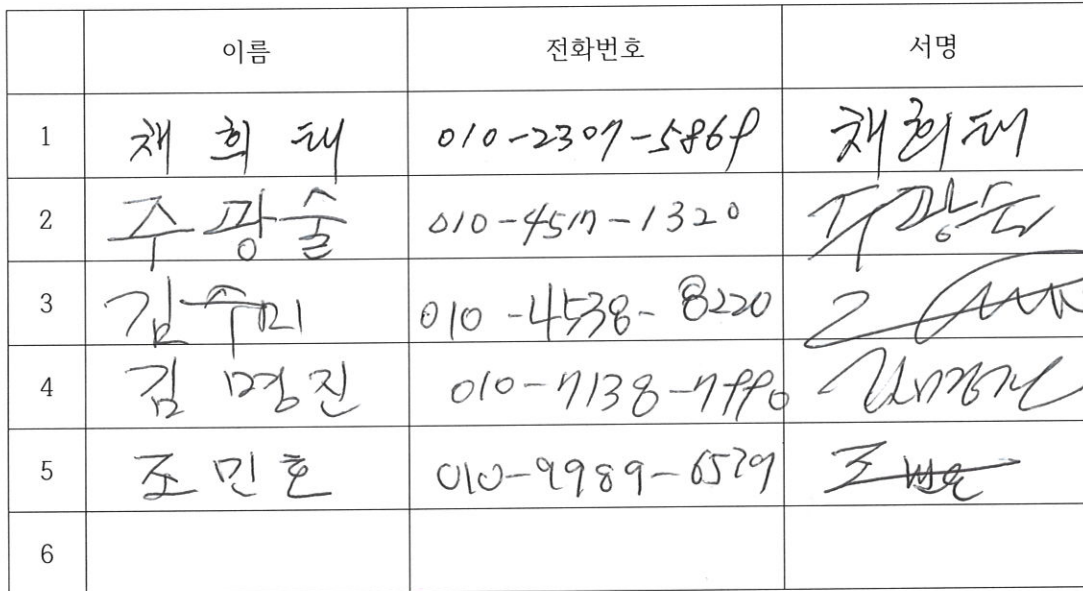 이름 전화번호 서명
1 채희태 010-2307-5869 채희태
2 주광술 010-4517-1320 주광술
3 김수미 010-4538-8220
4 김명진 010-7138-7990 김명진
5 조민호 010-9989-6579 조민호
6